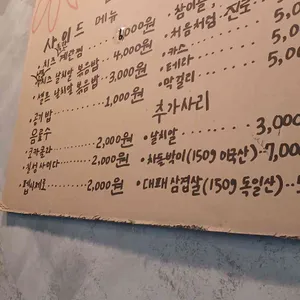 사이드 메뉴
치즈 계란찜 6,000원
치즈 날치알 볶음밥 4,000원
날치알 볶음밥 3,000원
공기밥 1,000원
음료수
코카콜라 2,000원
칠성사이다 2,000원
펩시제로 2,000원
참이슬, 진로
처음처럼 5,0
카스 5,0
테라 5,
막걸리
추가사리
날치알 3,000
차돌박이(150g 미국산) 7,000
대패삼겹살(150g 독일산)